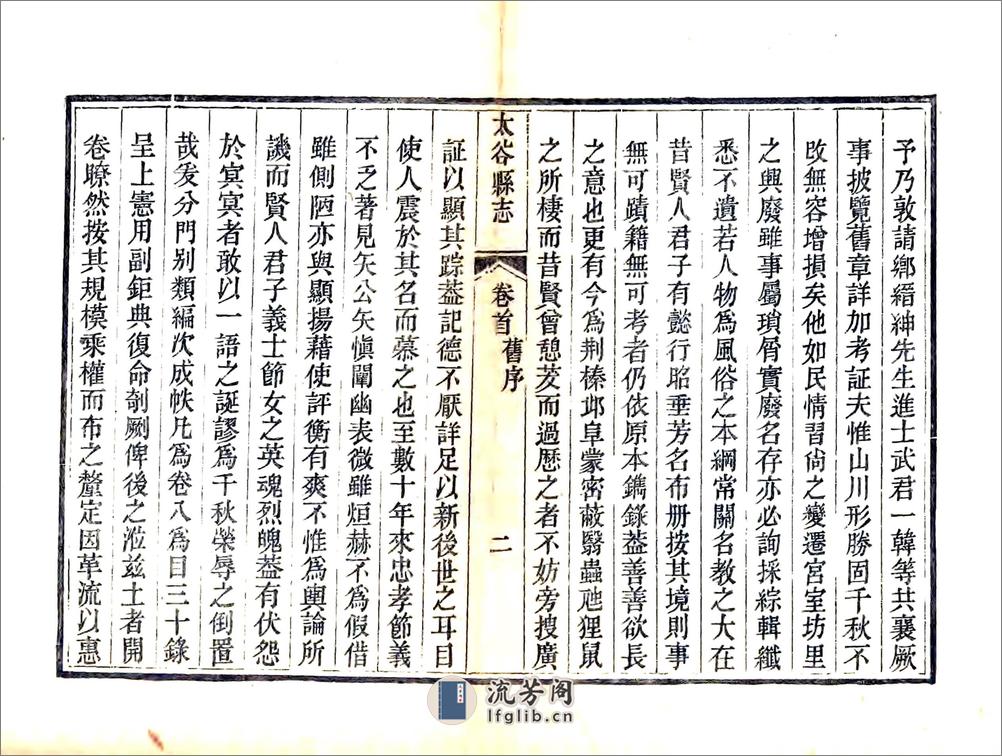 予乃敦請鄉縉紳先生進士武君一韓等共襄厥
事披覽舊章詳加考証夫惟山川形勝固千秋不
改無容增損矣他如民情習尙之變遷宮室坊里
之興廢雖事屬瑣屑實廢名存亦必詢採綜輯纖
悉不遺若人物爲風俗之本綱常關名教之大在
昔賢人君子有懿行昭垂芳名布册按其境則事
無可蹟籍無可考者仍依原本鐫錄葢善善欲長
之意也更有今爲荆榛邱阜蒙密蔽翳蟲虺狸鼠
之所棲而昔賢曾憩茇而過歷之者不妨旁搜廣
太谷縣志
卷首
舊序
二
証以顯其踪葢記德不厭詳足以新後世之耳目
使人震於其名而慕之也至數十年來忠孝節義
不乏著見矢公矢愼闡幽表微雖烜赫不爲假借
雖側陋亦與顯揚藉使評衡有爽不惟爲輿論所
譏而賢人君子義士節女之英魂烈魄葢有伏怨
於冥冥者敢以一語之誕謬爲千秋榮辱之倒置
哉爰分門别類編次成帙凡爲卷八爲目三十錄
呈上憲用副鉅典復命剞劂俾後之涖兹土者開
卷瞭然按其規模乘權而布之釐定因革流以惠
流芳阁
lfglib.cn